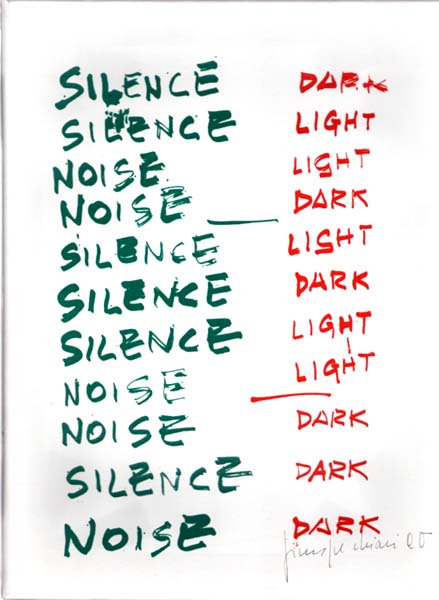 SILENCE DARK
SILENCE LIGHT
NOISE LIGHT
NOISE DARK
SILENCE LIGHT
SILENCE DARK
SILENCE LIGHT
NOISE LIGHT
NOISE DARK
SILENCE DARK
NOISE DARK